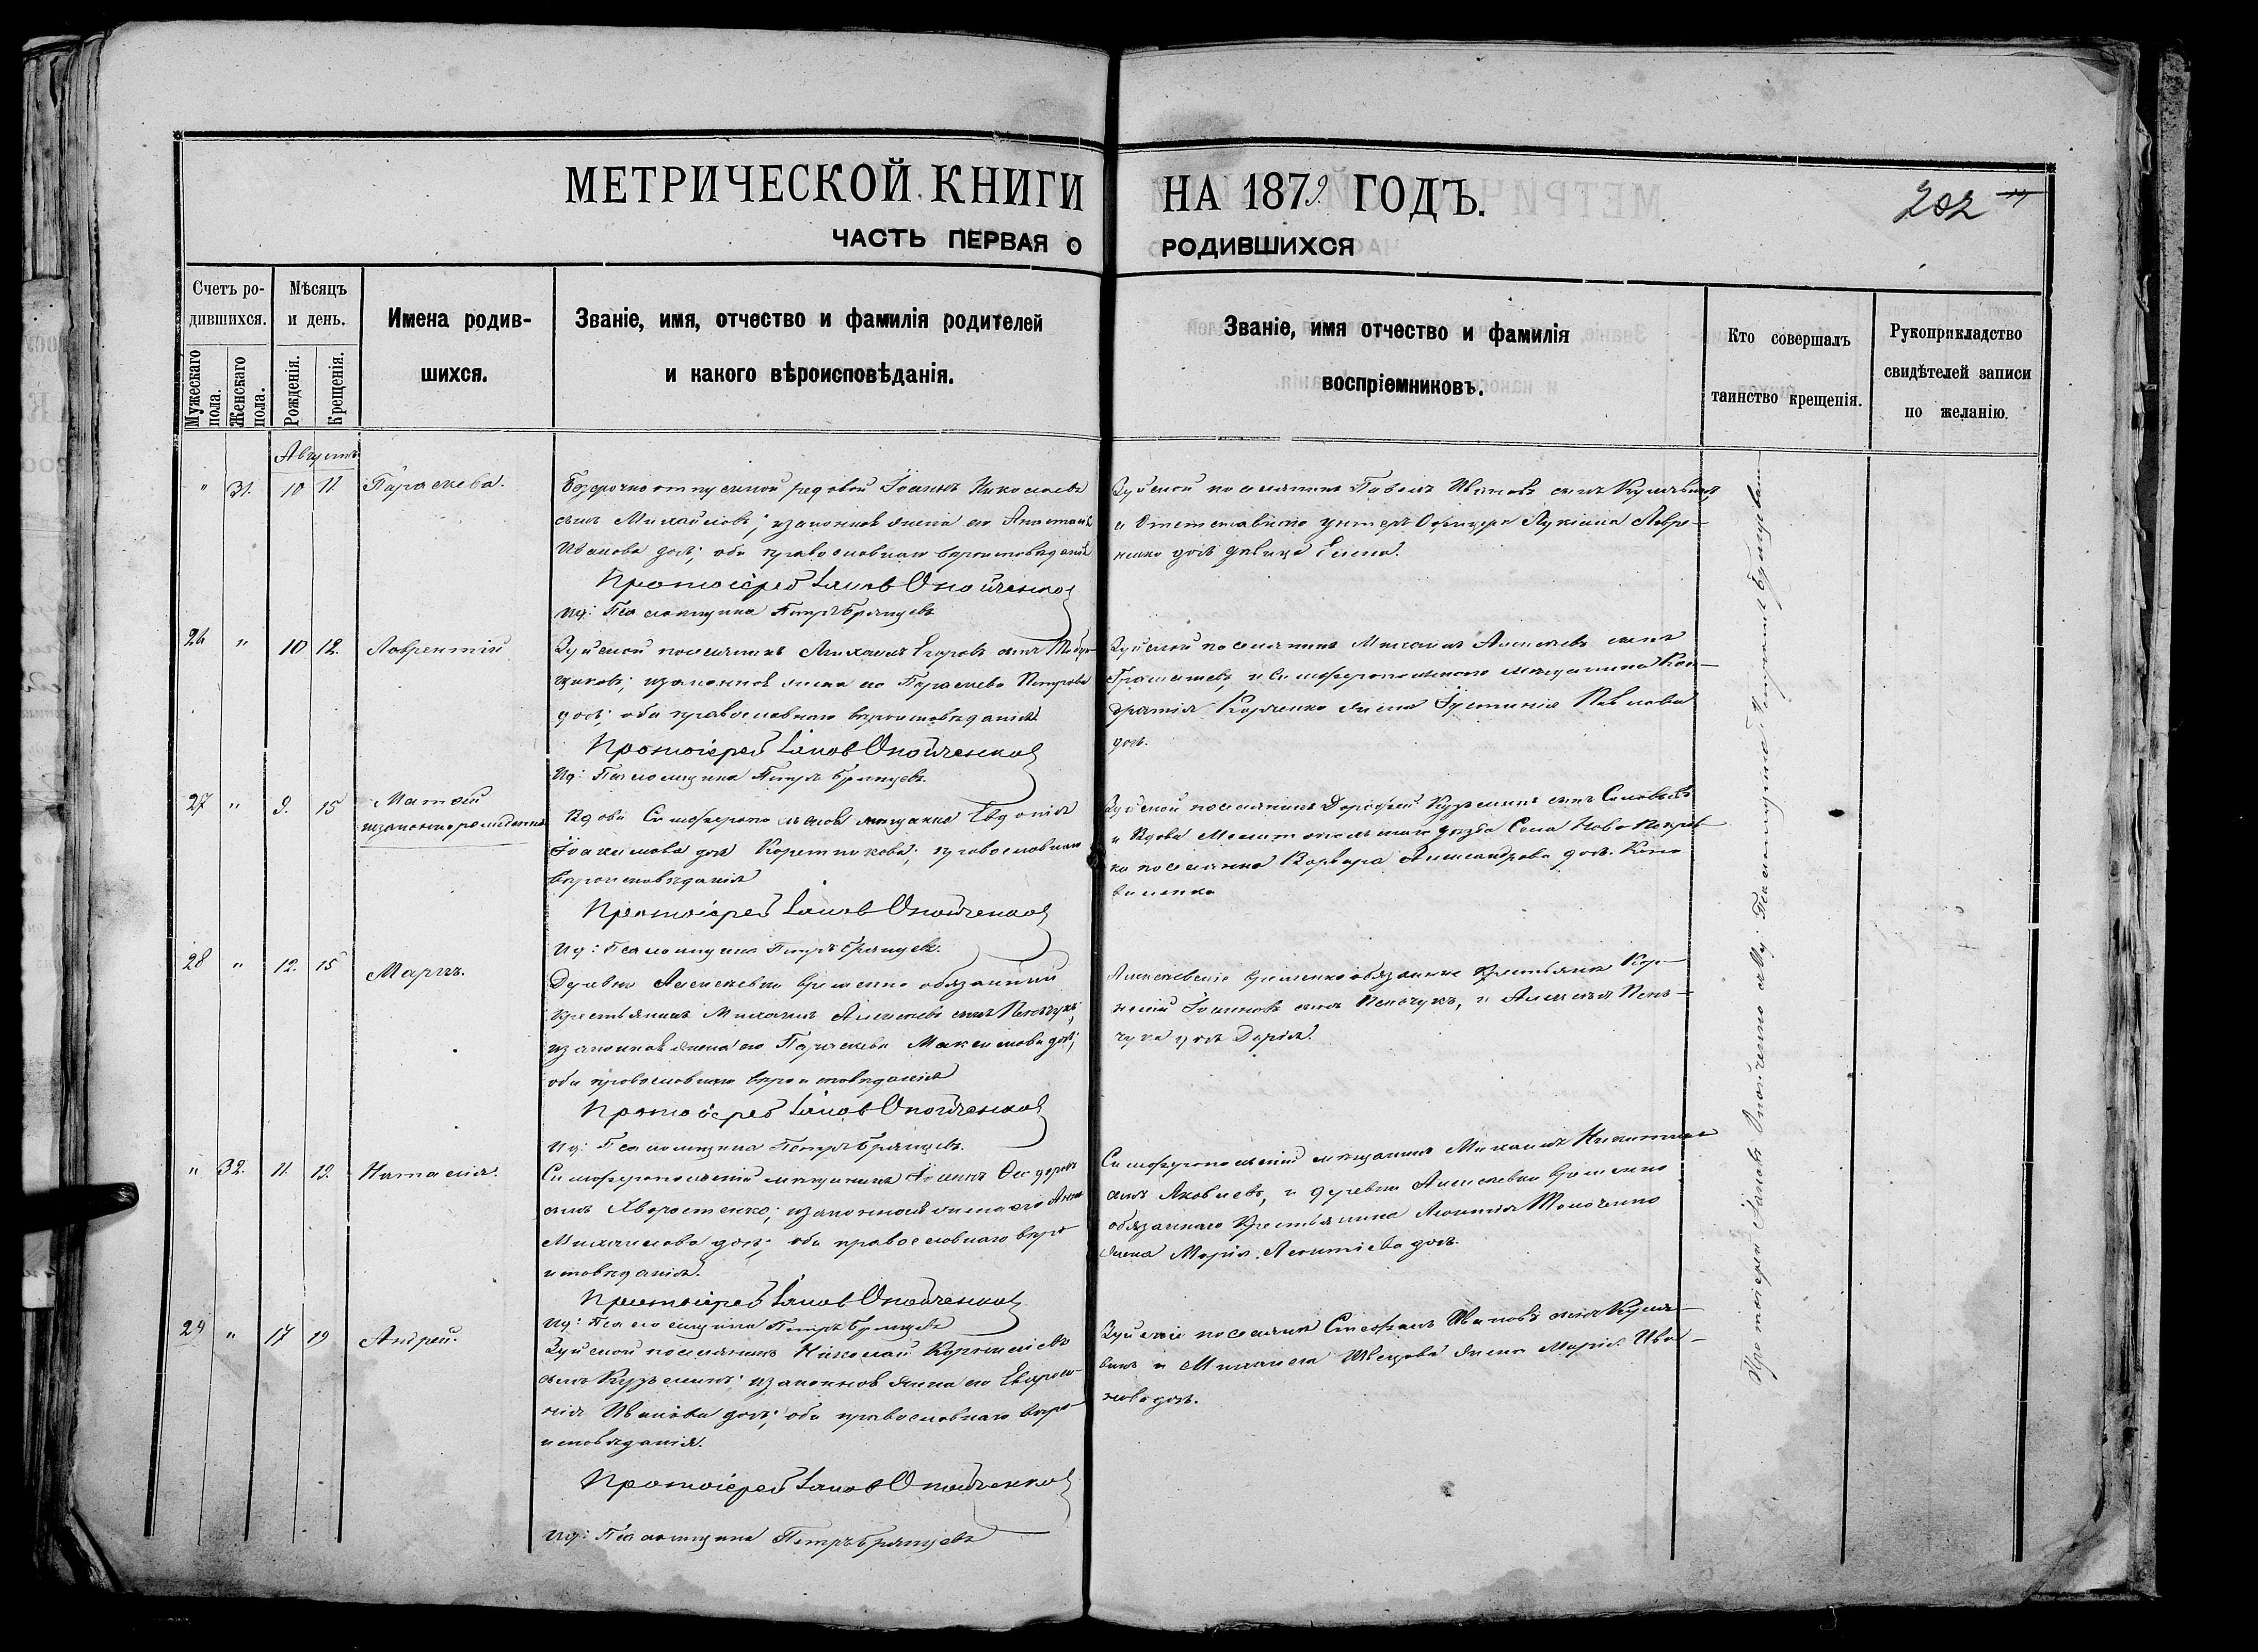 МЕТРИЧЕСКОЙ КНИГИ НА 1879 ГОДЪ.
202
ЧАСТЬ ПЕРВАЯ О РОДИВШИХСЯ
Счетъ ро-
дившихся.
Мужескаго пола.
Женскаго пола.
Мѣсяцъ
и день.
Рожденія.
Крещенія.
Имена родив-
шихся.
Званіе, имя, отчество и фамилія родителей
и какого вѣроисповѣданія.
Званіе, имя отчество и фамилія
воспріемниковъ.
Кто совершалъ
таинство крещенія.
Рукоприкладство
свидѣтелей записи
по желанію.
Августъ
" 31. 10 11. Параскева.
Безсрочноотпускной рядовой Іоаннъ Николаевъ
сынъ Михайловъ; и законная жена его Анастасія
Иванова дочь; оба православнаго вѣроисповѣданія
Протоіерей Іаковъ
Ид: Псаломщика Петръ Брянцевъ
Зуйской поселянинъ Павелъ Ивановъ сынъ
и отставнаго унтеръ Офицера Лукіана Лавре-
ненко дочь дѣвица Елена.
26 " 10 12. Лаврентій
Зуйской поселянинъ Михаилъ Егоровъ сынъ
щиковъ; и законная жена его Параскева Петрова
дочь; оба православнаго вѣроисповѣданія
Протоіерей Іаковъ
Ид: Псаломщика Петръ Брянцевъ.
Зуйской поселянинъ Михаилъ Алексѣевъ сынъ
и Симферопольскаго мѣщанина Кон-
дратія жена Іустинія Павлова
дочь.
27 " 9. 15
незаконнорожденный
Вдова Симферопольская мѣщанка Евдокія
Іоакимова дочь православнаго
вѣроисповѣданія
Протоіерей Іаковъ
Ид: Псаломщика Петръ Брянцевъ.
Зуйской поселянинъ Дорофей Кузьминъ сынъ Соловьевъ
и Вдова Мелитопольскаго уѣзда Села Ново Покров-
ка поселянка Варвара Александрова дочь Коно-
валенко
28 " 12. 15 Маркъ.
Деревни Алексѣевки временно обязанный
крестьянинъ Михаилъ Алексѣевъ сынъ
и законная жена его Параскева Максимова дочь;
оба православнаго вѣроисповѣданія
Протоіерей Іаковъ
Ид: Псаломщика Петръ Брянцевъ.
Алексѣевскіе временно обязанные крестьяне Кор-
нилій Іоанновъ сынъ и Алексѣя
чука дочь Дарія.
" 32. 11. 19. Наталія.
Симферопольскій мѣщанинъ Іоаннъ Ѳедоровъ
сынъ Хворостенко; и законная жена его Анна
Михайлова дочь; оба православнаго вѣро-
исповѣданія.
Протоіерей Іаковъ
Ид: Псаломщика Петръ Брянцевъ
Симферопольскій мѣщанинъ Михаилъ Никитинъ
сынъ Яковлевъ, и деревни Алексѣевки временно
обязаннаго крестьянина Леонтія
жена Марія Леонтіева дочь.
29 " 17 19 Андрей.
Зуйской поселянинъ Николай Корниліевъ
сынъ Кузьминъ; и законная жена его Евфроси-
нія Иванова дочь; оба православнаго вѣро-
исповѣданія.
Протоіерей Іаковъ
Ид: Псаломщика Петръ Брянцевъ
Зуйскіе поселяне Стефанъ Ивановъ сынъ
и Михаила Швецова жена Марія Ива-
нова дочь.
Протоіерей Іаковъ